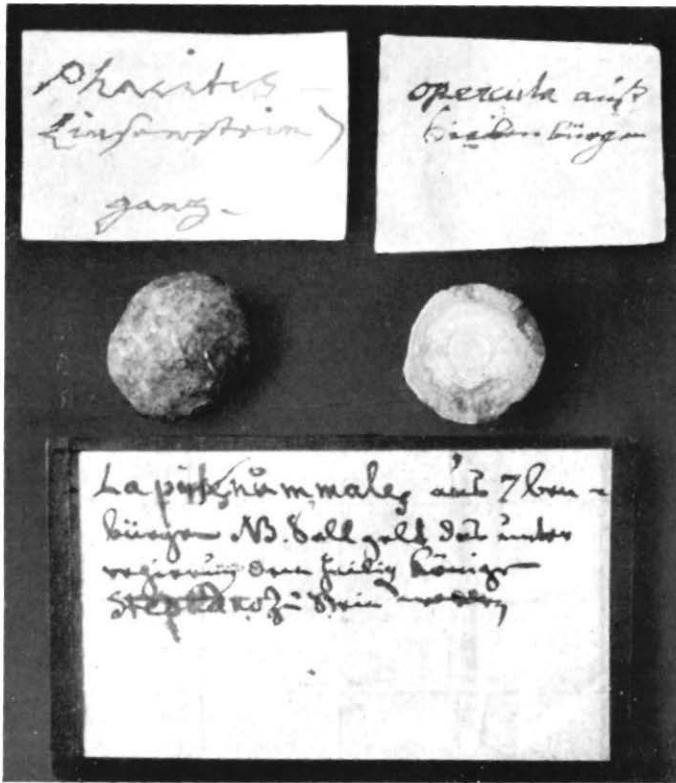 Phacites
Linsenstein)
ganz.
opercula auß
Siebenbürgen
Lapis nummales aus 7ben-
bürgen NB. Soll geld das unter
regierung dem heilig Königs
Stephano zu Stein worden